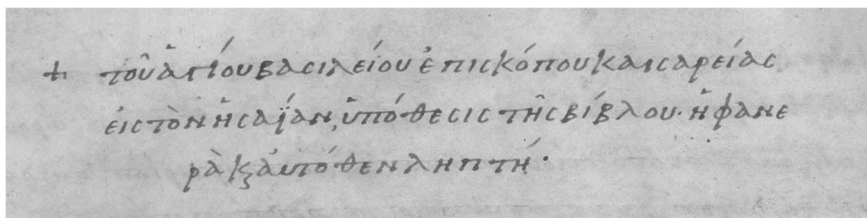 + τοῦ ἁγίου βασιλείου ἐπισκόπου καισαρείας
εἰς τὸν ἡσαΐαν, ὑπόθεσις τῆς βίβλου· ἡ φανε
ρὰ κ̀ αὐτόθεν ληπτή·